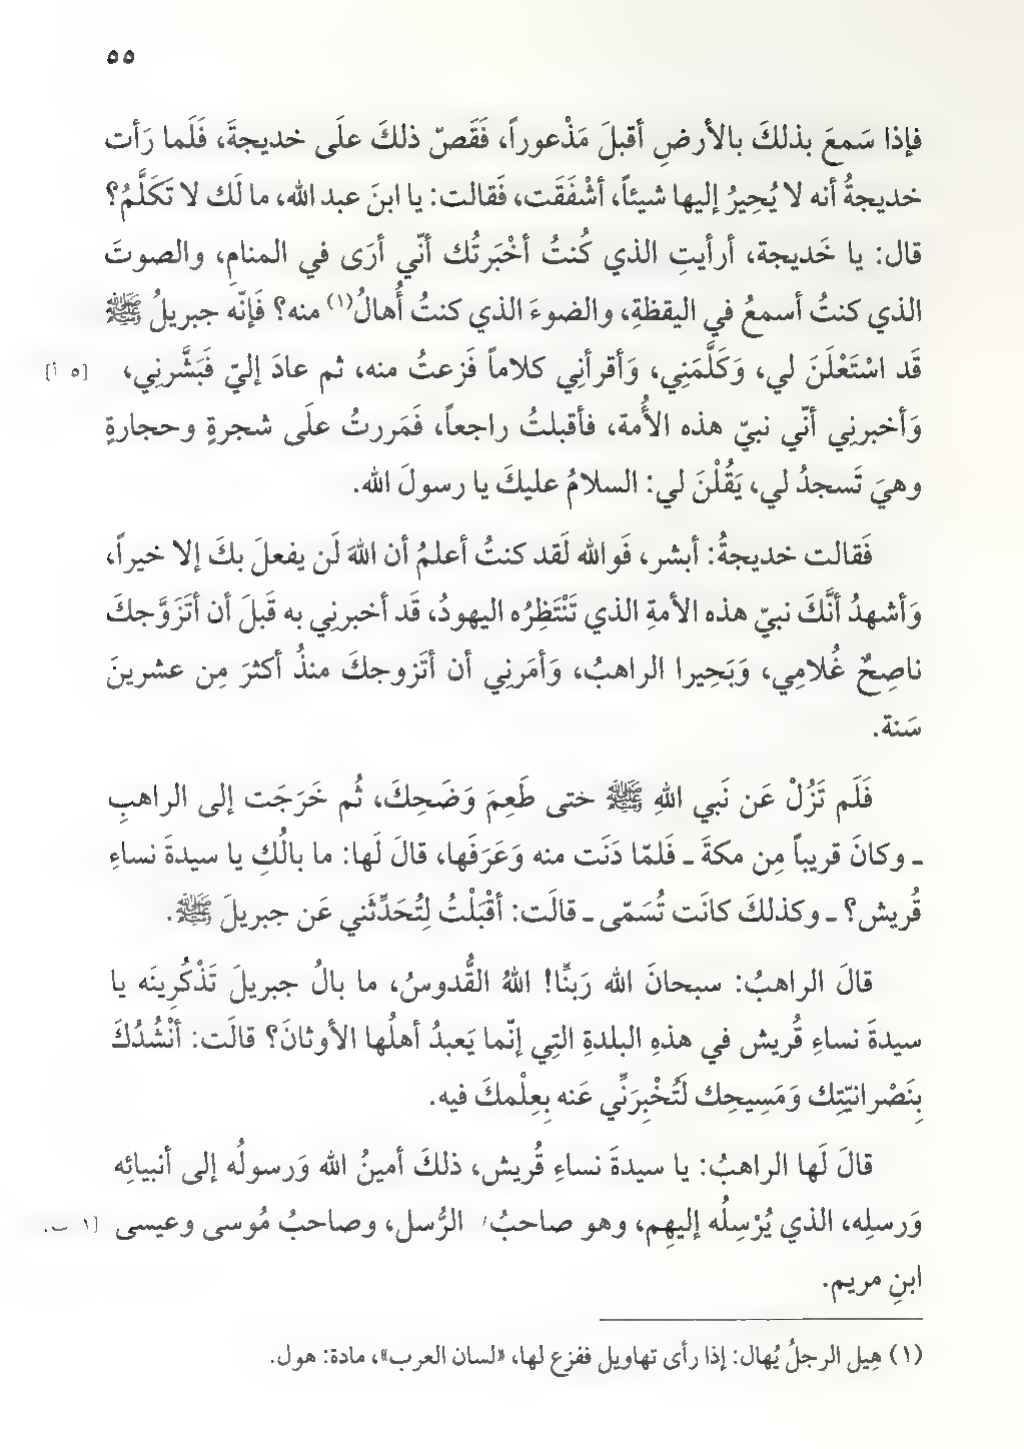 ٥٥
فإذا سَمعَ بذلكَ بالأرضِ أقبلَ مَذْعوراً، فَقَصّ ذلكَ علَى خديجةَ، فَلَما رَأت
خديجةُ أنه لا يُحِيرُ إليها شيئاً، أشْفَقَت، فَقالت: يا ابنَ عبد الله، ما لَك لا تَكَلَّمُ؟
قال: يا خَديجة، أرأيتِ الذي كُنتُ أخْبَرتُك أنّي أرَى في المنامِ، والصوتَ
الذي كنتُ أسمعُ في اليقظةِ، والضوءَ الذي كنتُ أُهالُ(١) منه؟ فَإنّه جبريلُ ﷺ
قَد اسْتَعْلَنَ لي، وَكَلَّمَنِي، وَأقرأنِي كلاماً فَزعتُ منه، ثم عادَ إليّ فَبَشَّرنِي، [٥ أ]
وَأخبرنِي أنّي نبيّ هذه الأُمة، فأقبلتُ راجعاً، فَمَررتُ علَى شجرةٍ وحجارةٍ
وهيَ تَسجدُ لي، يَقُلْنَ لي: السلامُ عليكَ يا رسولَ الله.
فَقالت خديجةُ: أبشر، فَوالله لَقد كنتُ أعلمُ أن اللهَ لَن يفعلَ بكَ إلا خيراً،
وَأشهدُ أنَّكَ نبيّ هذه الأمةِ الذي تَنْتَظِرُه اليهودُ، قَد أخبرنِي به قَبلَ أن أتَزَوَّجكَ
ناصِحٌ غُلامِي، وَبَحِيرا الراهبُ، وَأمَرنِي أن أتَزوجكَ منذُ أكثرَ مِن عشرينَ
سَنة.
فَلَم تَزُلْ عَن نَبي اللهِ ﷺ حتى طَعِمَ وَضَحِكَ، ثُم خَرَجَت إلى الراهبِ
ـ وكانَ قريباً مِن مكةَ ـ فَلمّا دَنَت منه وَعَرَفَها، قالَ لَها: ما بالُكِ يا سيدةَ نساءِ
قُريش؟ ـ وكذلكَ كانَت تُسَمّى ـ قالَت: أقْبَلْتُ لِتُحَدِّثَني عَن جبريلَ ﷺ.
قالَ الراهبُ: سبحانَ الله رَبنَّا! اللهُ القُّدوسُ، ما بالُ جبريلَ تَذْكُرِينَه يا
سيدةَ نساءِ قُريش في هذهِ البلدةِ التِي إنّما يَعبدُ أهلُها الأوثانَ؟ قالَت: أنْشُدُكَ
بِنَصْرانيّتِك وَمَسِيحِك لَتُخْبِرَنِّي عَنه بِعِلْمكَ فيه.
قالَ لَها الراهبُ: يا سيدةَ نساءِ قُريش، ذلكَ أمينُ الله وَرسولُه إلى أنبيائِه
وَرسلِه، الذي يُرْسِلُه إليهِم، وهو صاحبُ/ الرُّسل، وصاحبُ مُوسى وعيسى
ابنِ مريم.
(١) هِيل الرجلُ يُهال: إذا رأى تهاويل ففزع لها، «لسان العرب»، مادة: هول.